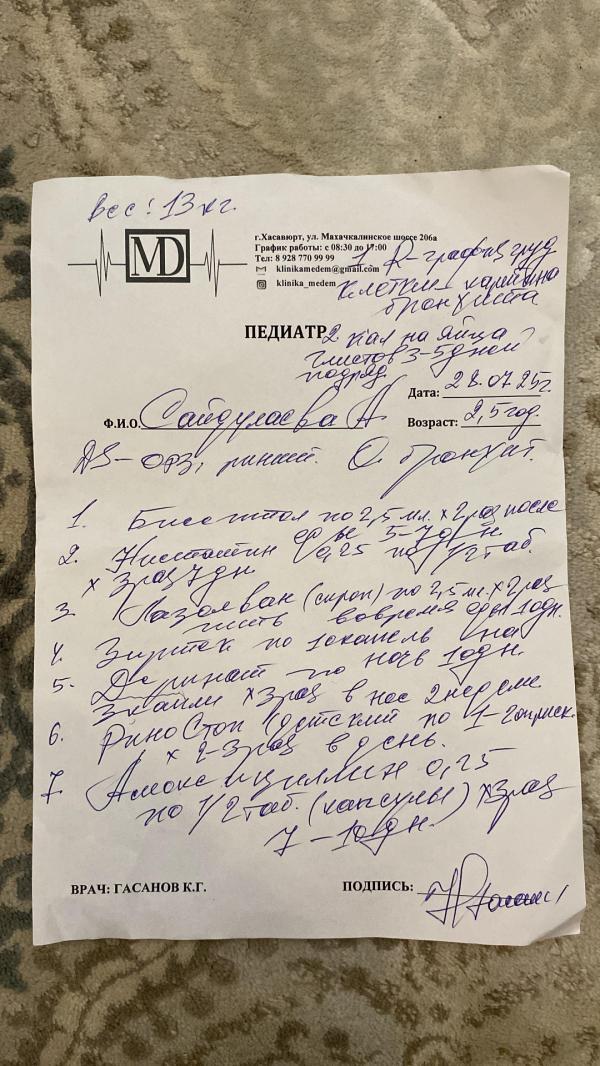 вес! 13 кг.
MD
г.Хасавюрт, ул. Махачкалинское шоссе 206а
График работы: с 08:30 до 17:00
Тел: 8 928 770 99 99
klinikamedem@gmail.com
klinika_medem
1 R-графия груд
клетки - картина
бронхита
ПЕДИАТР
2 кал на яйца
глистов 3-5 дней
подряд.
Дата: 28.07.25г.
Ф.И.О. Сайдулаева А
Возраст: 2,5 год.
DS - ОРЗ, ринит. О. бронхит.
1. по 2,5 мл. х 2 раз после
еды 5-7 дн
2. Нистатин 0,25 по 1/2 таб.
х 3 раз 7 дн
3. Лазолван (сироп) по 2,5 мл. х 2 раз
пить вовремя еды 10 дн.
4. Зиртек по 10 капель на
ночь 10 дн.
5. Деринат по
3 капли х 3 раз в нос 2 недели
6. РиноСтоп (детский по 1-2
х 2-3 раз в день.
7. Амоксициллин 0,25
по 1/2 таб. (капсулы) х 3 раз
7-10 дн.
ВРАЧ: ГАСАНОВ К.Г.
ПОДПИСЬ: